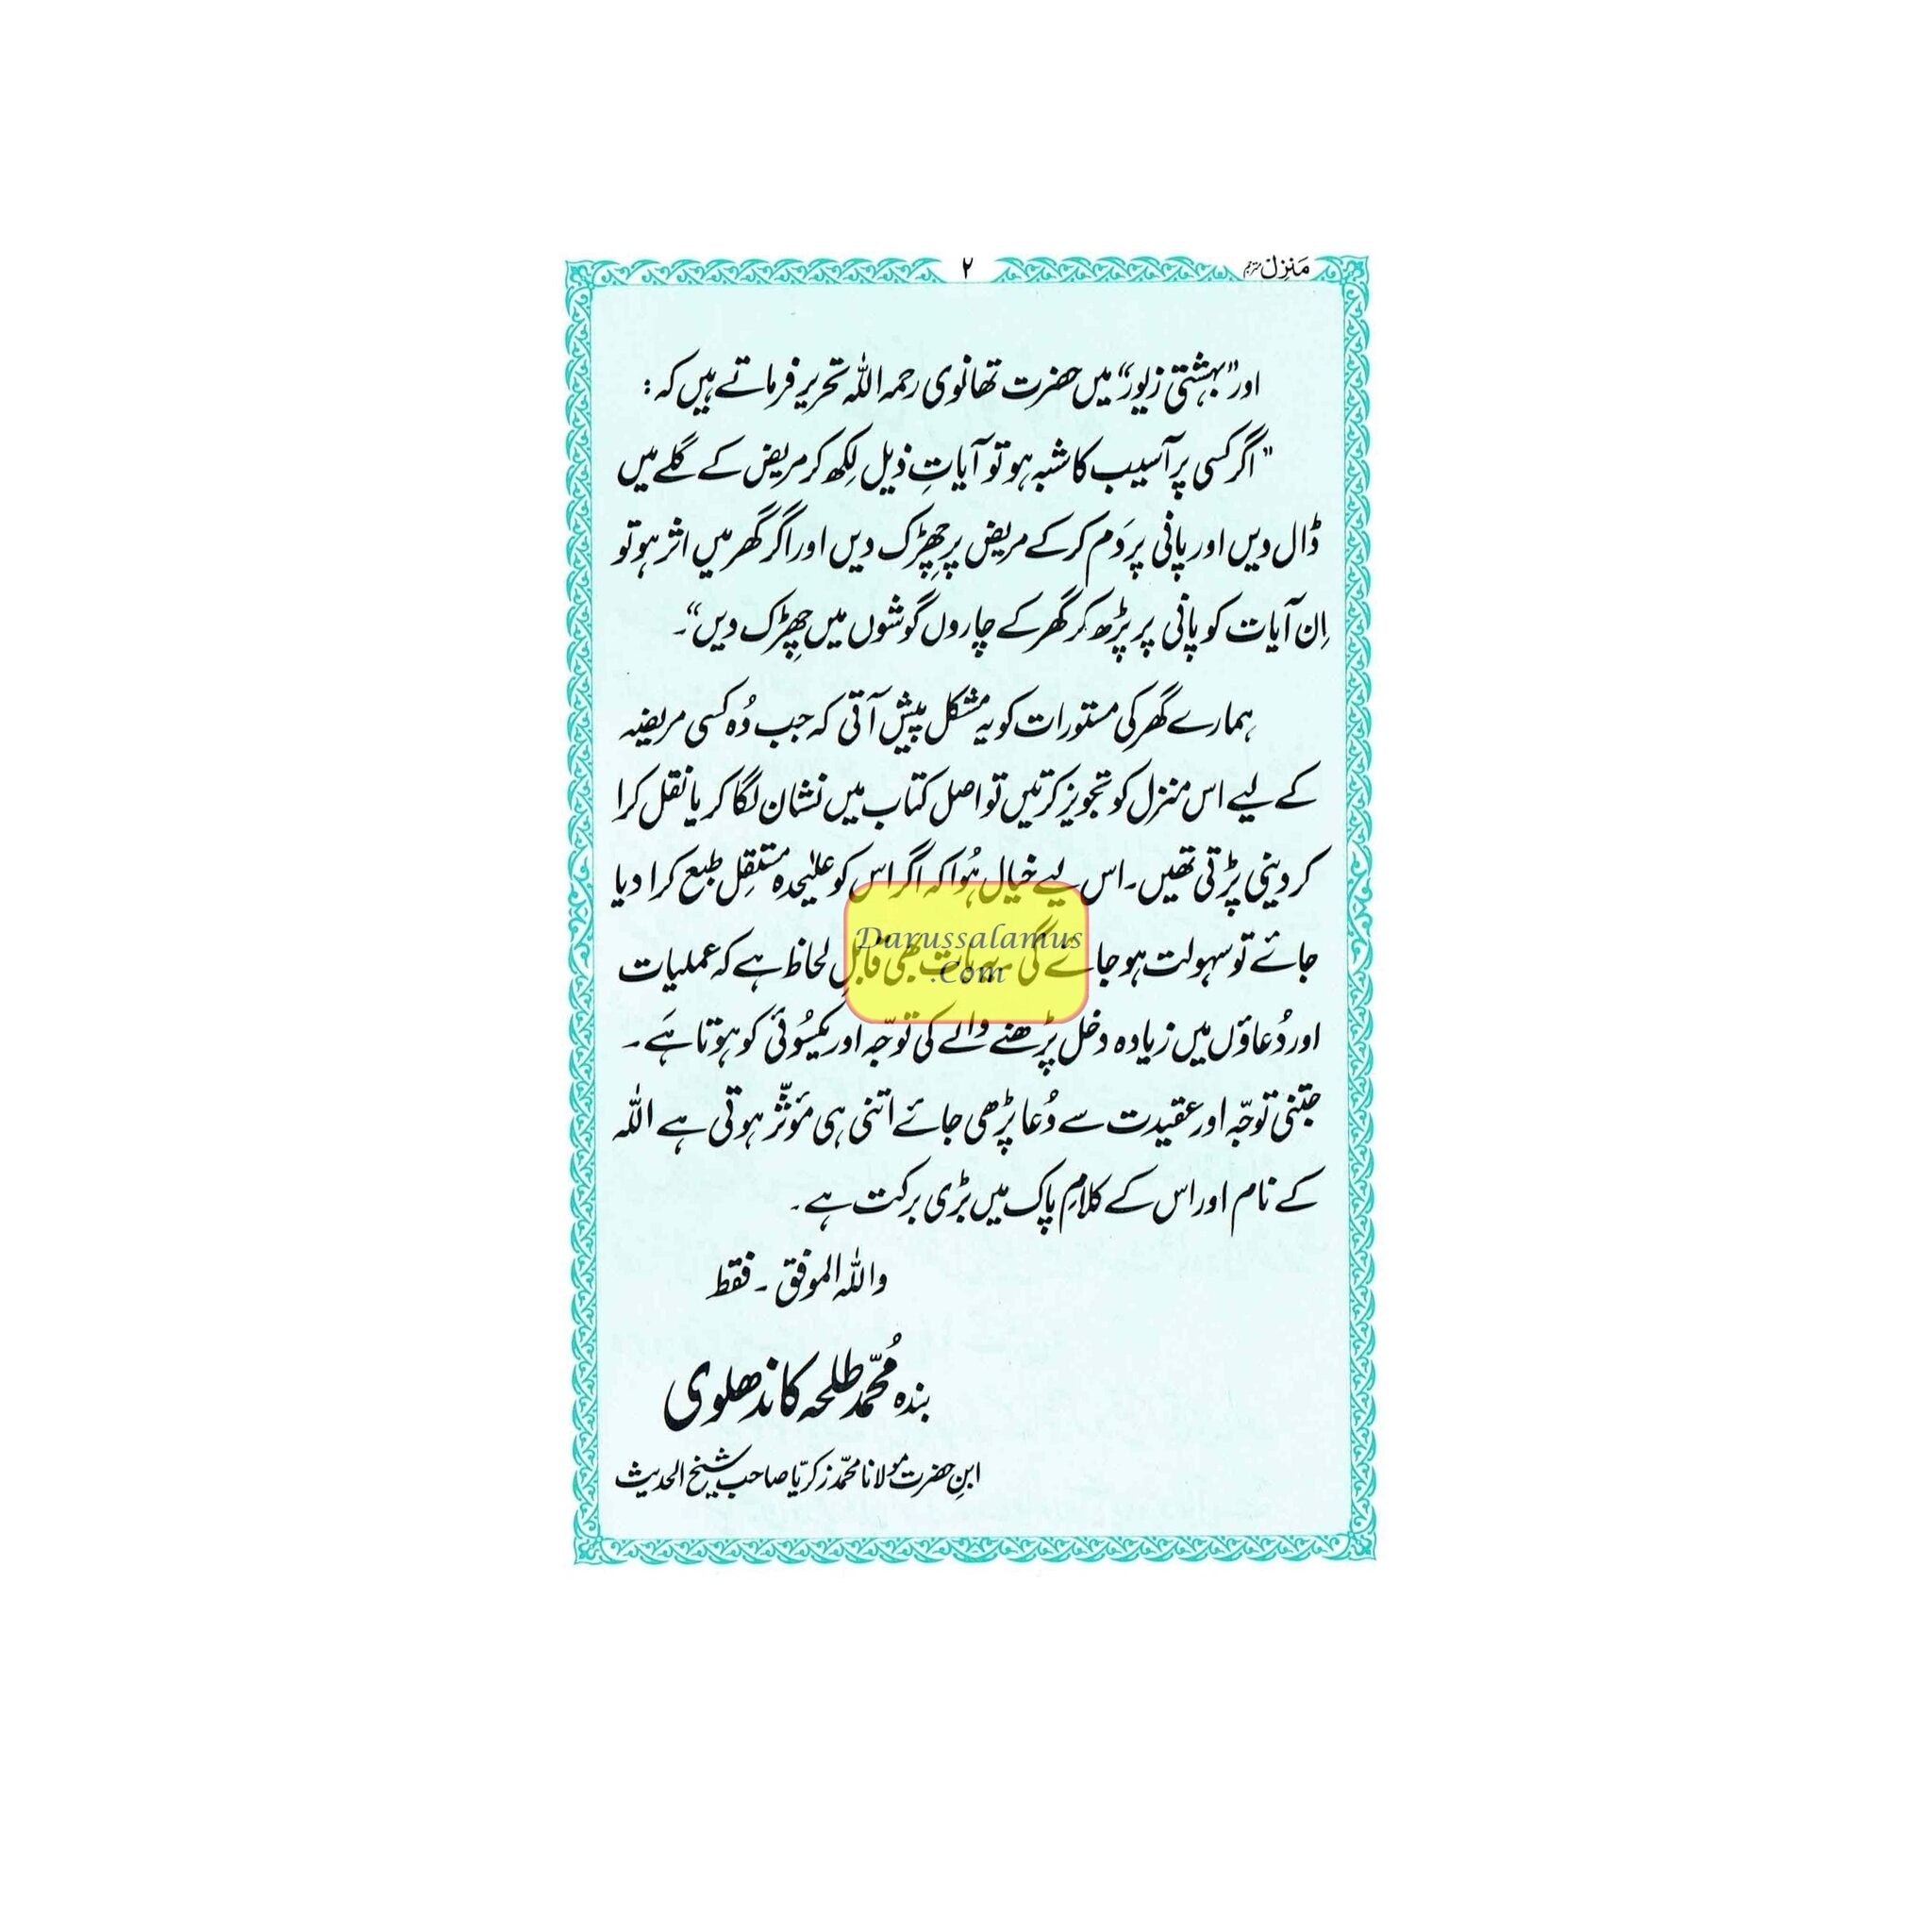 منزل مترجم
۲
اور "بہشتی زیور" میں حضرت تھانوی رحمہ اللہ تحریر فرماتے ہیں کہ:
"اگر کسی پر آسیب کا شبہ ہو تو آیاتِ ذیل لِکھ کر مریض کے گلے میں
ڈال دیں اور پانی پر دَم کر کے مریض پر چِھڑک دیں اور اگر گھر میں اثر ہو تو
اِن آیات کو پانی پر پڑھ کر گھر کے چاروں گوشوں میں چِھڑک دیں"۔
ہمارے گھر کی مستورات کو یہ مشکل پیش آتی کہ جب وُہ کسی مریضہ
کے لیے اس منزل کو تجویز کرتیں تو اصل کتاب میں نشان لگا کر یا نقل کرا
کر دینی پڑتی تھیں۔ اس لیے خیال ہُوا کہ اگر اس کو علیٰحدہ مستقِل طبع کرا دیا
جائے تو سہولت ہو جائے گی۔ یہ بات بھی قابلِ لحاظ ہے کہ عملیات
اور دُعاؤں میں زیادہ دخل پڑھنے والے کی توجّہ اور یکسُوئی کو ہوتا ہَے۔
جتنی توجّہ اور عقیدت سے دُعا پڑھی جائے اتنی ہی مؤثّر ہوتی ہے اللہ
کے نام اور اس کے کلامِ پاک میں بڑی برکت ہے۔
واللہ الموفق۔ فقط
بندہ مُحمّد طلحہ کاندھلوی
ابنِ حضرت مولانا محمّد زکریّا صاحب شیخ الحدیث
Darussalamus
.Com